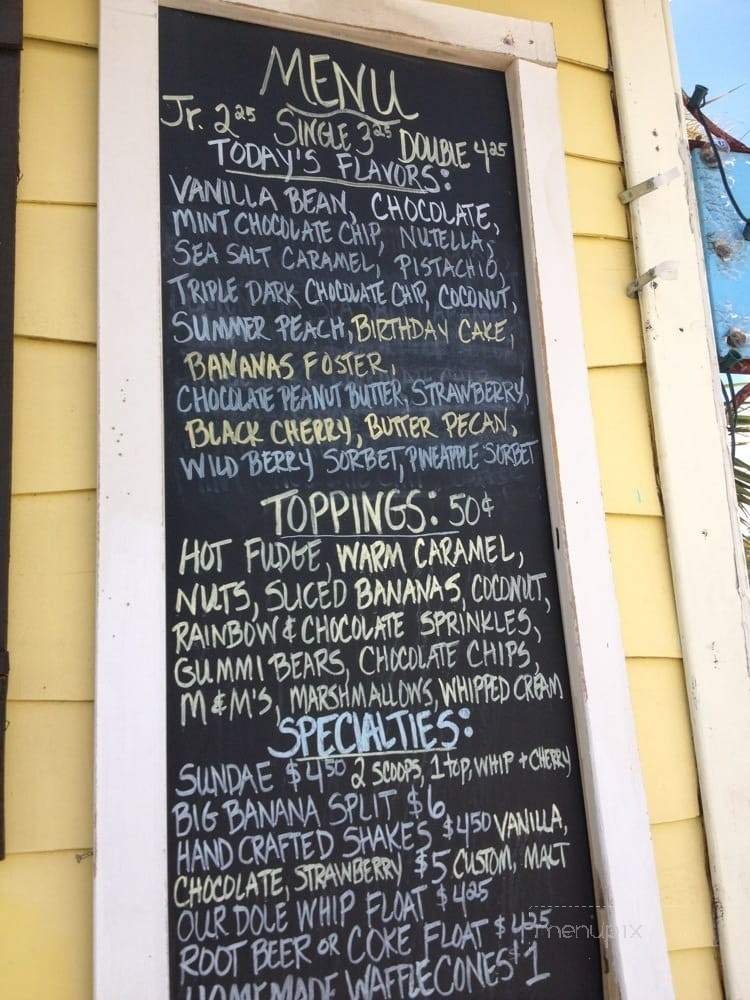 MENU
Jr. 2.25 SINGLE 3.25 DOUBLE 4.25
TODAY'S FLAVORS:
VANILLA BEAN, CHOCOLATE,
MINT CHOCOLATE CHIP, NUTELLA,
SEA SALT CARAMEL, PISTACHIO,
TRIPLE DARK CHOCOLATE CHIP, COCONUT,
SUMMER PEACH, BIRTHDAY CAKE,
BANANAS FOSTER,
CHOCOLATE PEANUT BUTTER, STRAWBERRY,
BLACK CHERRY, BUTTER PECAN,
WILD BERRY SORBET, PINEAPPLE SORBET
TOPPINGS: 50¢
HOT FUDGE, WARM CARAMEL,
NUTS, SLICED BANANAS, COCONUT,
RAINBOW & CHOCOLATE SPRINKLES,
GUMMI BEARS, CHOCOLATE CHIPS,
M&M'S, MARSHMALLOWS, WHIPPED CREAM
SPECIALTIES:
SUNDAE $4.50 2 SCOOPS, 1 TOP, WHIP + CHERRY
BIG BANANA SPLIT $6
HAND CRAFTED SHAKES $4.50 VANILLA,
CHOCOLATE, STRAWBERRY $5 CUSTOM, MALT
OUR DOLE WHIP FLOAT $4.25
ROOT BEER OR COKE FLOAT $4.25
HOMEMADE WAFFLECONES $1
menupix